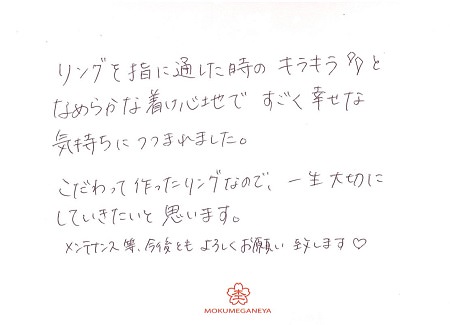 リングを指に通した時の キラキラ と
なめらかな着け心地で すごく幸せな
気持ちにつつまれました。
こだわって作ったリングなので、一生大切に
していきたいと思います。
メンテナンス等、今後とも よろしくお願い 致します♡
MOKUMEGANEYA